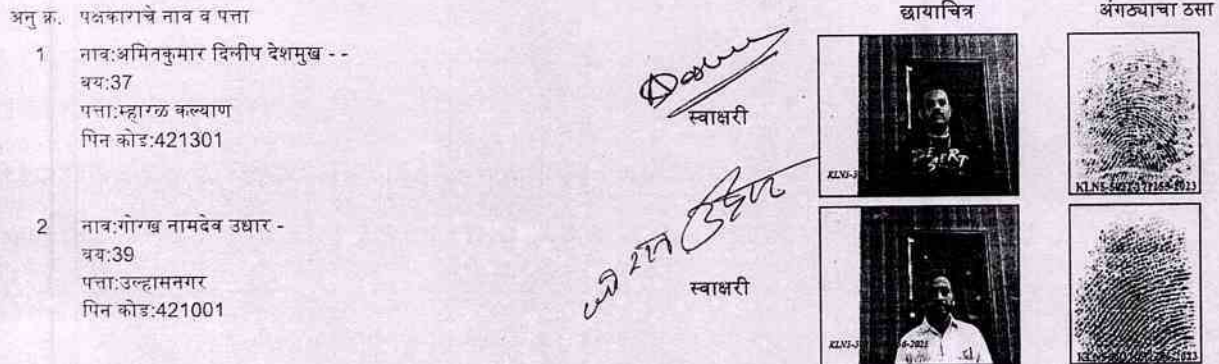 अनु क्र. पक्षकाराचे नाव व पत्ता छायाचित्र अंगठ्याचा ठसा
1 नाव:अमितकुमार दिलीप देशमुख - -
वय:37
पत्ता:म्हारळ कल्याण
पिन कोड:421301
स्वाक्षरी
DESERT
2 नाव:गोरख नामदेव उधार -
वय:39
पत्ता:उल्हासनगर
पिन कोड:421001
स्वाक्षरी